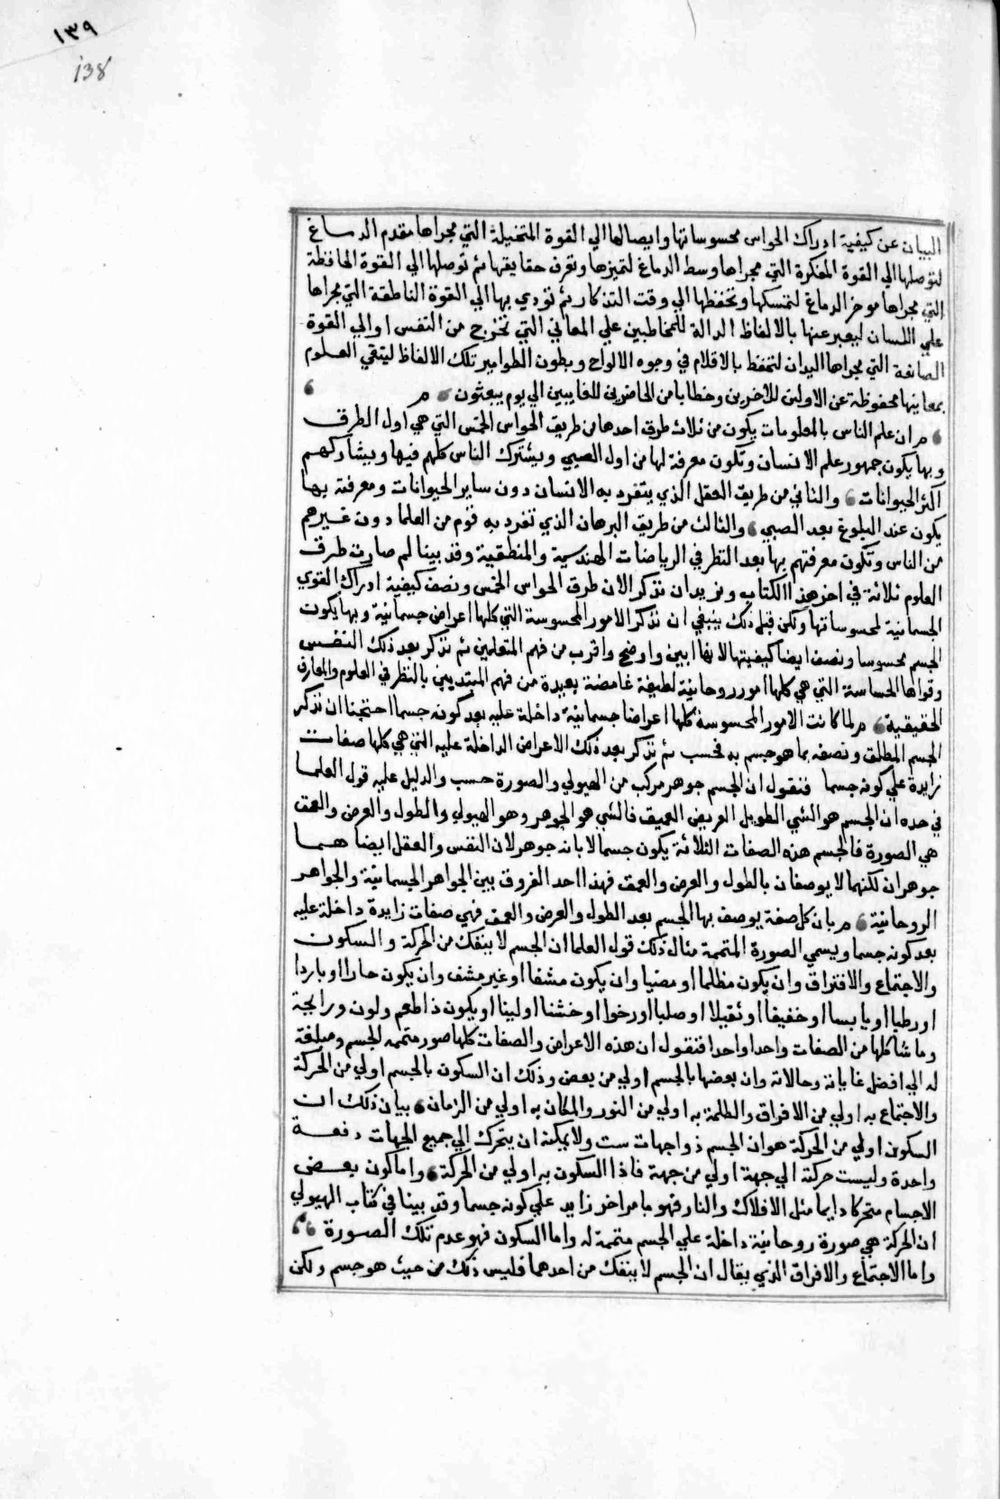 ١٣٩
138
البيان عن كيفية ادراك الحواس محسوساتها وايصالها الي القوة المتخيلة التي مجراها مقدم الدماغ
لتوصلها الي القوة المفكرة التي مجراها وسط الدماغ لتميزها وتعرف حقايقها ثم توصلها الي القوة الحافظة
التي مجراها موخر الدماغ لتمسكها وتحفظها الي وقت التذكار ثم تودي بها الي القوة الناطقة التي مجراها
علي اللسان ليعبر عنها بالالفاظ الدالة للمخاطبين علي المعاني التي تخرج من النفس او الي القوة
الصانعة التي مجراها اليدان لتحفظ بالاقلام في وجوه الالواح وبطون الطوامير تلك الالفاظ ليتقي العلوم
بمعاينها محفوظة عن الاولين للاخرين وخطابا من الحاضرين للغايبين الي يوم يبعثون م
م ان علم الناس بالمعلومات يكون من ثلاث طرق احدها من طريق الحواس الخمس التي هي اول الطرق
وبها يكون جمهور علم الانسان وتكون معرفة لها من اول الصبي ويشترك الناس كلهم فيها ويشاركهم
اكثر الحيوانات والثاني من طريق العقل الذي يتفرد به الانسان دون ساير الحيوانات ومعرفته بها
يكون عند البلوغ بعد الصبي والثالث من طريق البرهان الذي تفرد به قوم من العلما دون غيرهم
من الناس وتكون معرفتهم بها بعد النظر في الرياضات الهندسية والمنطقية وقد بينا لم صارت طرق
العلوم ثلاثة في اخر هذا الكتاب ونريد ان نذكر الان طرق الحواس الخمس ونصف كيفية ادراك القوي
الجسمانية لمحسوساتها ولكن قبل ذلك ينبغي ان نذكر الامور المحسوسة التي كلها اعراض جسمانية وبها يكون
الجسم محسوسا ونصف ايضا كيفيتها لانها ابين واوضح واقرب من فهم المتعلمين ثم نذكر بعد ذلك النفس
وقواها الحساسة التي هي كلها امور روحانية لطيفة غامضة بعيدة من فهم المبتديين بالنظر في العلوم والمعارف
الحقيقية م لما كانت الامور المحسوسة كلها اعراضا جسمانية داخلة عليه بعد كونه جسما احتجنا ان نذكر
الجسم المطلق ونصفه بما هو جسم به فحسب ثم نذكر بعد ذلك الاعراض الداخلة عليه التي هي كلها صفات
زايدة علي كونه جسما فنقول ان الجسم جوهر مركب من الهيولي والصورة حسب والدليل عليه قول العلما
في حده ان الجسم هو الشي الطويل العريض العميق فالشي هو الجوهر وهو الهيولي والطول والعرض والعمق
هي الصورة فالجسم هذه الصفات الثلاثة يكون جسما لا بانه جوهر لان النفس والعقل ايضا هما
جوهران لكنهما لا يوصفان بالطول والعرض والعمق فهذا احد الفروق بين الجواهر الجسمانية والجواهر
الروحانية م بان كل صفة يوصف بها الجسم بعد الطول والعرض والعمق فهي صفات زايدة داخلة عليه
بعد كونه جسما ويسمي الصورة المتممة مثال ذلك قول العلما ان الجسم لا ينفك من الحركة والسكون
والاجتماع والافتراق وان يكون مظلما او مضيا وان يكون مشفا او غير مشف وان يكون حارا او باردا
او رطبا او يابسا او خفيفا او ثقيلا او صلبا او رخوا او خشنا او لينا او يكون ذا طعم ولون ورايحة
وما شاكلها من الصفات واحدا واحدا فنقول ان هذه الاعراض والصفات كلها صور متممه للجسم ومبلغة
له الي افضل غاياته وحالاته وان بعضها بالجسم اولي من بعض وذلك ان السكون بالجسم اولي من الحركة
والاجتماع به اولي من الافراق والظلمة به اولي من النور والمكان به اولي من الزمان بيان ذلك ان
السكون اولي من الحركة هو ان الجسم ذو اجهات ست ولا يمكنه ان يتحرك الي جميع الجهات دفعة
واحدة وليست حركته الي جهة اولي من جهة فاذا السكون به اولي من الحركة واما كون بعض
الاجسام متحركا دايما مثل الافلاك والنار فهو بامر اخر زايد علي كونه جسما وقد بينا في كتاب الهيولي
ان الحركة هي صورة روحانية داخلة علي الجسم متممة له واما السكون فهو عدم تلك الصورة
واما الاجتماع والافراق الذي يقال ان الجسم لا ينفك من احدهما فليس ذلك من حيث هو جسم ولكن